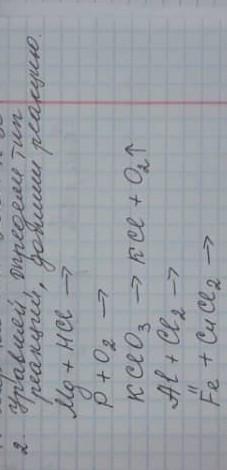 2 уравней, определи тип
реакций, допиши реакцию.
Mg + HCl →
P + O₂ →
KClO₃ → KCl + O₂↑
Al + Cl₂ →
Fe + CuCl₂ →